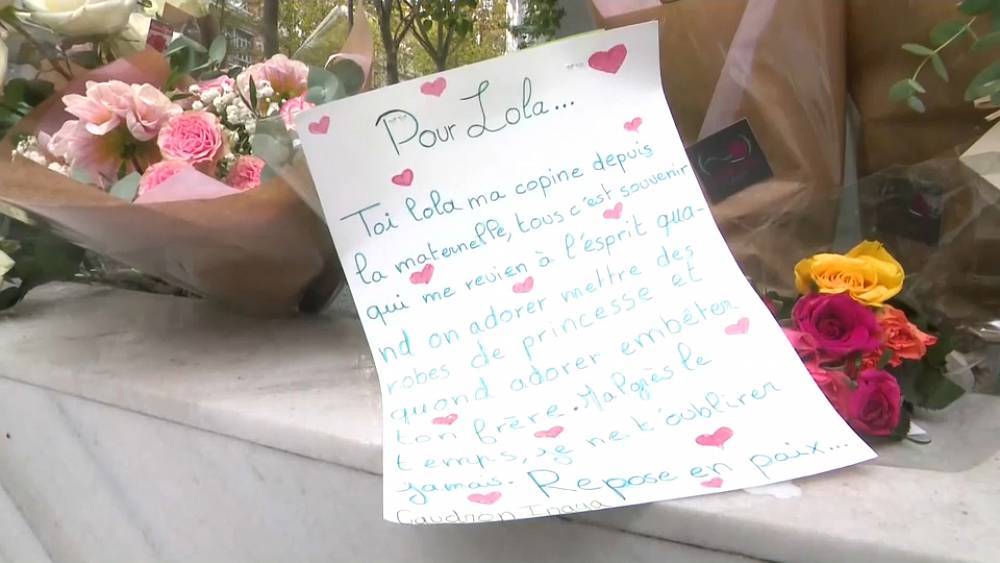 Pour Lola...
Toi lola ma copine depuis
la maternelle, tous c'est souvenir
qui me revien à l'esprit qua-
nd on adorer mettre des
robes de princesse et
quand adorer embêter
ton frère. Malgrès le
temps, je ne t'oublirer
jamais. Repose en paix...
Gaudron Inaya